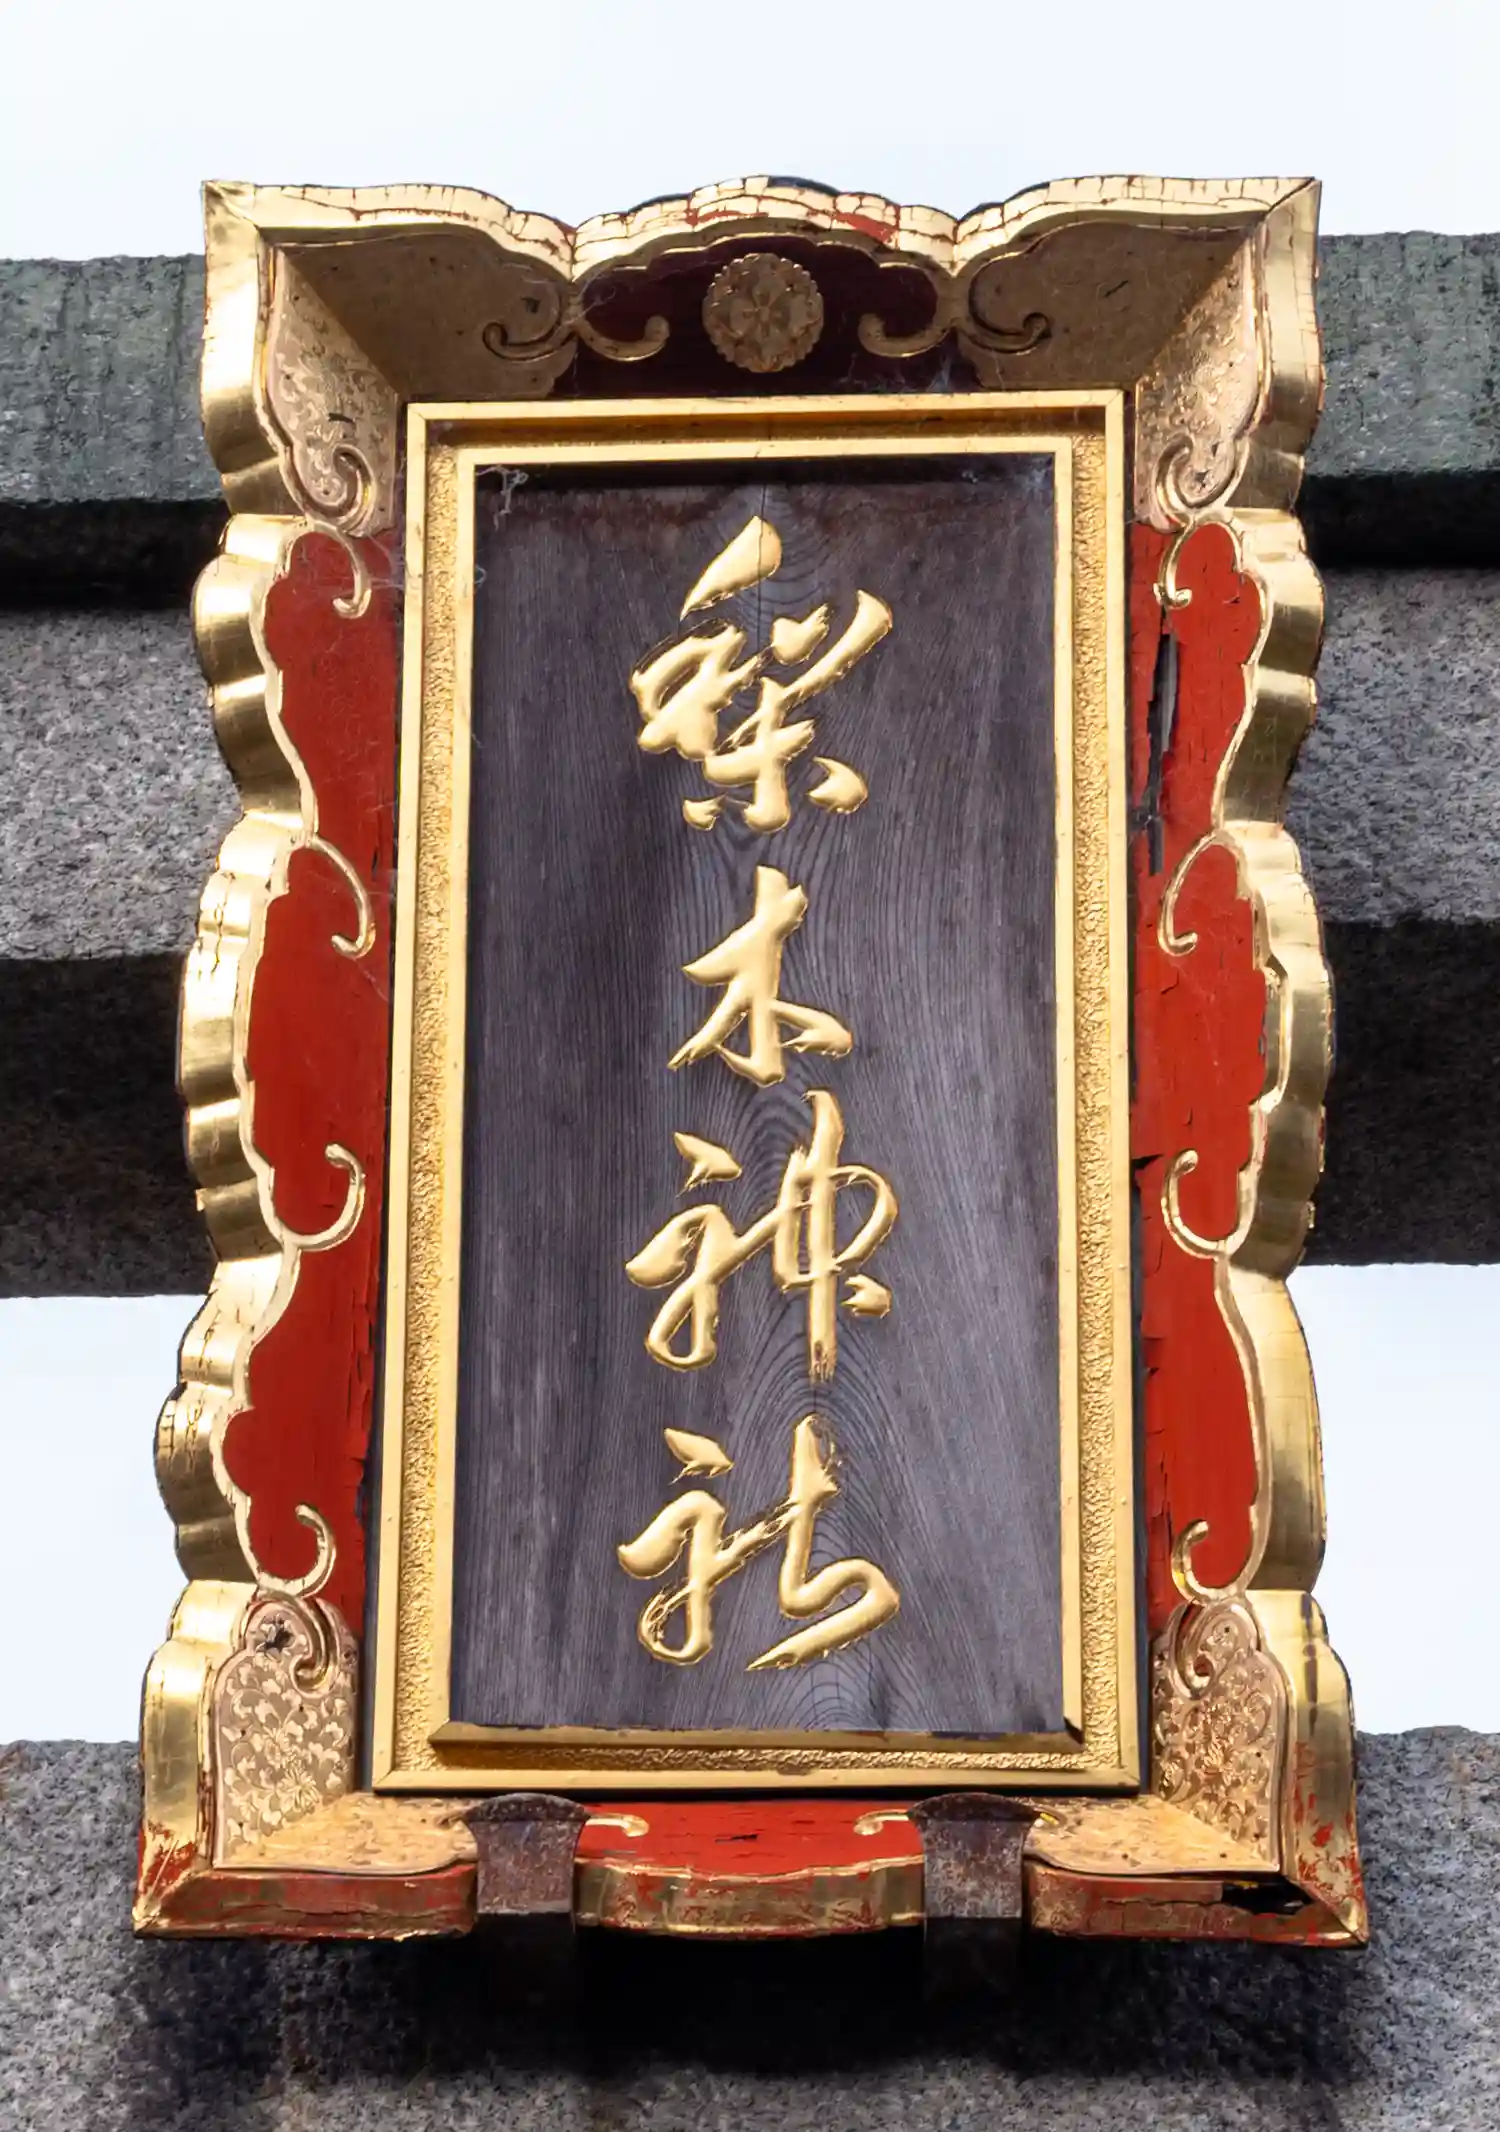 梨木神社